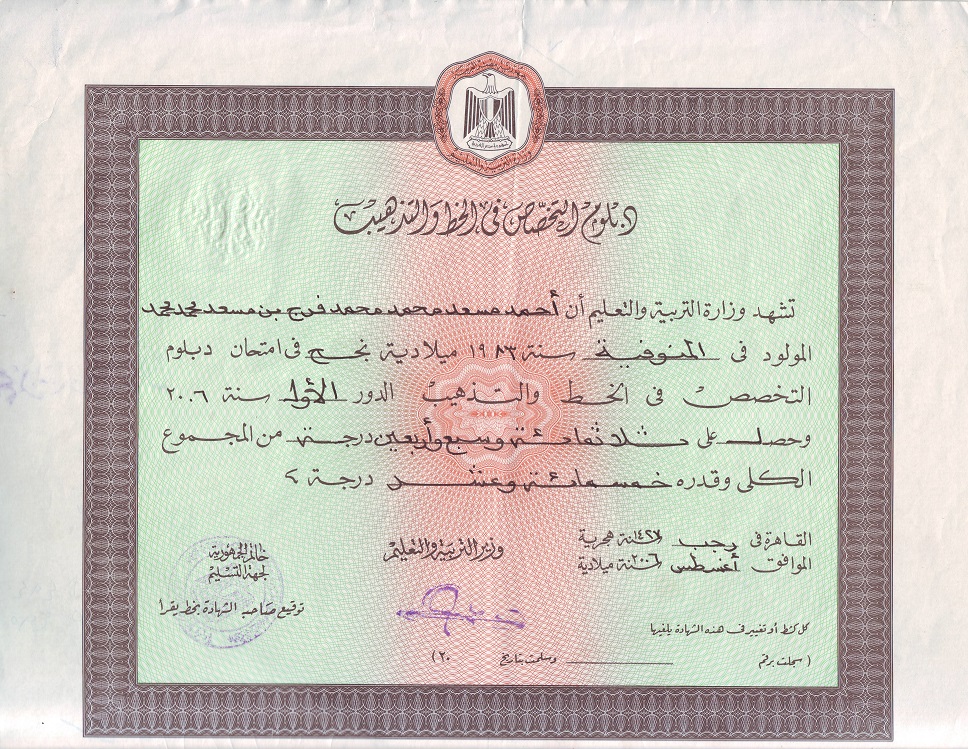 دبلوم التخصص في الخط والتذهيب
تشهد وزارة التربية والتعليم أن أحمد مسعد محمد محمد فرج بن مسعد محمد محمد
المولود فى المنوفية سنة ١٩٨٣ ميلادية نجح فى امتحان دبلوم
التخصص فى الخط والتذهيب الدور الأول سنة ٢٠٠٦
وحصل على ثلاثمائة وسبع وأربعين درجة من المجموع
الكلى وقدره خمسمائة وعشر درجة
القاهرة فى رجب سنة ١٤٢٧ هجرية
الموافق أغسطس سنة ٢٠٠٦ ميلادية
وزير التربية والتعليم
خاتم الجمهورية
لجهة التسليم
توقيع صاحب الشهادة بخط يقرأ
كل كشط أو تغيير فى هذه الشهادة يلغيها
( سجلت برقم وسلمت بتاريخ ٢٠ )